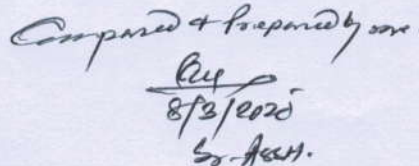 Compared & Prepared by me
8/3/2025
Sr. Asstt.